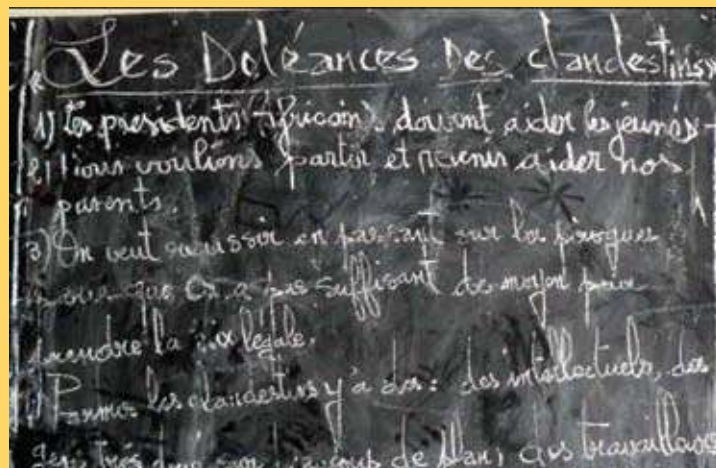 « Les Doléances Des clandestins »
1) Les presidents Africain doivent aider les jeunes
2) Nous voulions partir et revenir aider nos
parents.
3) On veut reussir en passant sur les pirogues
parce que On a pas suffisant de moyen pour
prendre la voix légale.
4) Parmis les clandestins y'a des : des intellectuels, des
gens très de plan, des travailleurs